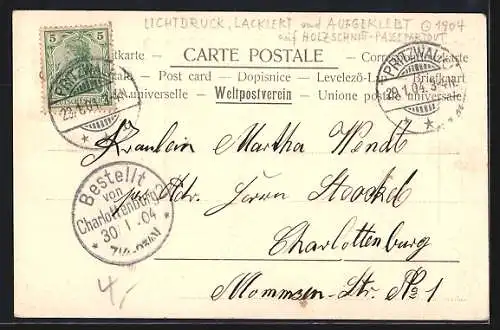 LICHTDRUCK, LACKIERT und AUFGEKLEBT © 1904
auf HOLZSCHNITT-PASSEPARTOUT
5 5
Postkarte — CARTE POSTALE — Correspondenzkarte
Post card — Dopisnice — Levelező-Lap — Briefkaart
universelle — Weltpostverein — Unione postale universale
PRITZWALK
29.1.04.3-4N.
*
PRITZWALK
29.1.04.3-4N.
* *
Fräulein Martha Wendt
per Adr. Herrn Stoeckel
Charlottenburg
Mommsen-Str. No 1
Bestellt
von
Charlottenburg 2
30.1.04
7½-
4,-